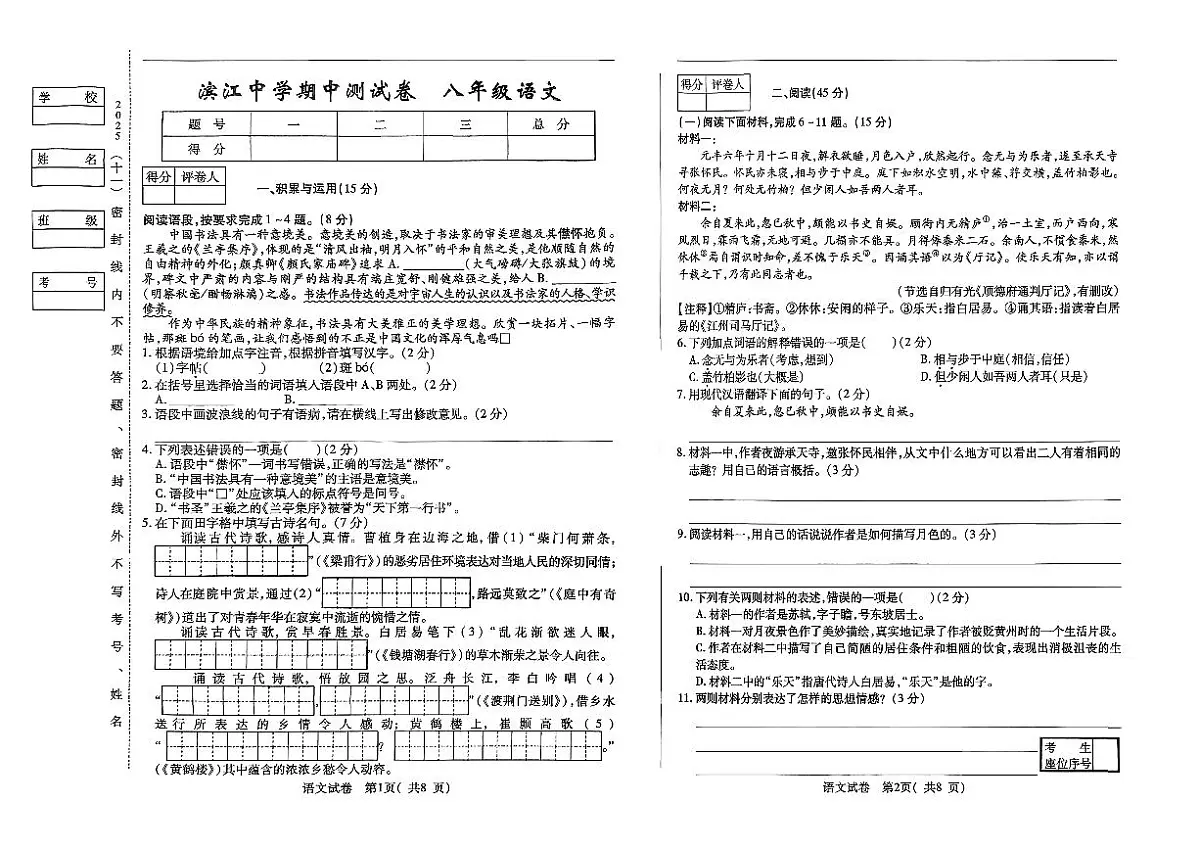 学 校
姓 名
班 级
考 号
2025(十一)密封线内不要答题、密封线外不写考号、姓名
滨江中学期中测试卷 八年级语文
题 号 一 二 三 总 分
得 分
得分 评卷人
一、积累与运用(15分)
阅读语段,按要求完成1~4题。(8分)
中国书法具有一种意境美。意境美的创造,取决于书法家的审美理想及其僸怀抱负。
王羲之的《兰亭集序》,体现的是“清风出袖,明月入怀”的平和自然之美,是他顺随自然的
自由精神的外化;颜真卿《颜氏家庙碑》追求A.________(大气磅礴/大张旗鼓)的境
界,碑文中严肃的内容与刚严的结构具有端庄宽舒、刚健雄强之美,给人B.________
(明察秋毫/酣畅淋漓)之感。书法作品传达的是对宇宙人生的认识以及书法家的人格、学识
修养。
作为中华民族的精神象征,书法具有大美雅正的美学理想。欣赏一块拓片、一幅字
帖,那斑bó的笔画,让我们感悟到的不正是中国文化的浑厚气息吗□
1.根据语境给加点字注音,根据拼音填写汉字。(2分)
(1)字帖( ) (2)斑bó( )
2.在括号里选择恰当的词语填入语段中A、B两处。(2分)
A.________ B.________
3.语段中画波浪线的句子有语病,请在横线上写出修改意见。(2分)
4.下列表述错误的一项是( )(2分)
A.语段中“僸怀”一词书写错误,正确的写法是“襟怀”。
B.“中国书法具有一种意境美”的主语是意境美。
C.语段中“□”处应该填入的标点符号是问号。
D.“书圣”王羲之的《兰亭集序》被誉为“天下第一行书”。
5.在下面田字格中填写古诗名句。(7分)
诵读古代诗歌,感诗人真情。曹植身在边海之地,借(1)“柴门何萧条,
”(《梁甫行》)的恶劣居住环境表达对当地人民的深切同情;
诗人在庭院中赏景,通过(2)“ ,路远莫致之”(《庭中有奇
树》)道出了对青春年华在寂寞中流逝的惋惜之情。
诵读古代诗歌,赏早春胜景。白居易笔下(3)“乱花渐欲迷人眼,
”(《钱塘湖春行》)的草木渐荣之景令人向往。
诵读古代诗歌,悟故园之思。泛舟长江,李白吟唱(4)
“ , ”(《渡荆门送别》),借乡水
送行所表达的乡情令人感动;黄鹤楼上,崔颢高歌(5)
“ ? 。”
(《黄鹤楼》)其中蕴含的浓浓乡愁令人动容。
语文试卷 第1页( 共8 页)
得分 评卷人
二、阅读(45分)
(一)阅读下面材料,完成6-11题。(15分)
材料一:
元丰六年十月十二日夜,解衣欲睡,月色入户,欣然起行。念无与为乐者,遂至承天寺
寻张怀民。怀民亦未寝,相与步于中庭。庭下如积水空明,水中藻、荇交横,盖竹柏影也。
何夜无月?何处无竹柏?但少闲人如吾两人者耳。
材料二:
余自夏来此,忽已秋中,颇能以书史自娱。顾衙内无精庐①,治一土室,而户西向,寒
风烈日,霖雨飞霜,无地可避。几榻亦不能具。月得俸黍米二石。余南人,不惯食黍米,然
休休②焉自谓识时知命,差不愧于乐天③。因诵其语④以为《厅记》。使乐天有知,亦以谓
千载之下,乃有此同志者也。
(节选自归有光《顺德府通判厅记》,有删改)
【注释】①精庐:书斋。②休休:安闲的样子。③乐天:指白居易。④诵其语:指读着白居
易的《江州司马厅记》。
6.下列加点词语的解释错误的一项是( )(2分)
A.念无与为乐者(考虑,想到) B.相与步于中庭(相信,信任)
C.盖竹柏影也(大概是) D.但少闲人如吾两人者耳(只是)
7.用现代汉语翻译下面的句子。(2分)
余自夏来此,忽已秋中,颇能以书史自娱。
8.材料一中,作者夜游承天寺,邀张怀民相伴,从文中什么地方可以看出二人有着相同的
志趣?用自己的语言概括。(3分)
9.阅读材料一,用自己的话说说作者是如何描写月色的。(3分)
10.下列有关两则材料的表述,错误的一项是( )(2分)
A.材料一的作者是苏轼,字子瞻,号东坡居士。
B.材料一对月夜景色作了美妙描绘,真实地记录了作者被贬黄州时的一个生活片段。
C.作者在材料二中描写了自己简陋的居住条件和粗陋的饮食,表现出消极沮丧的生
活态度。
D.材料二中的“乐天”指唐代诗人白居易,“乐天”是他的字。
11.两则材料分别表达了怎样的思想情感?(3分)
考 生
座位序号
语文试卷 第2页( 共8 页)